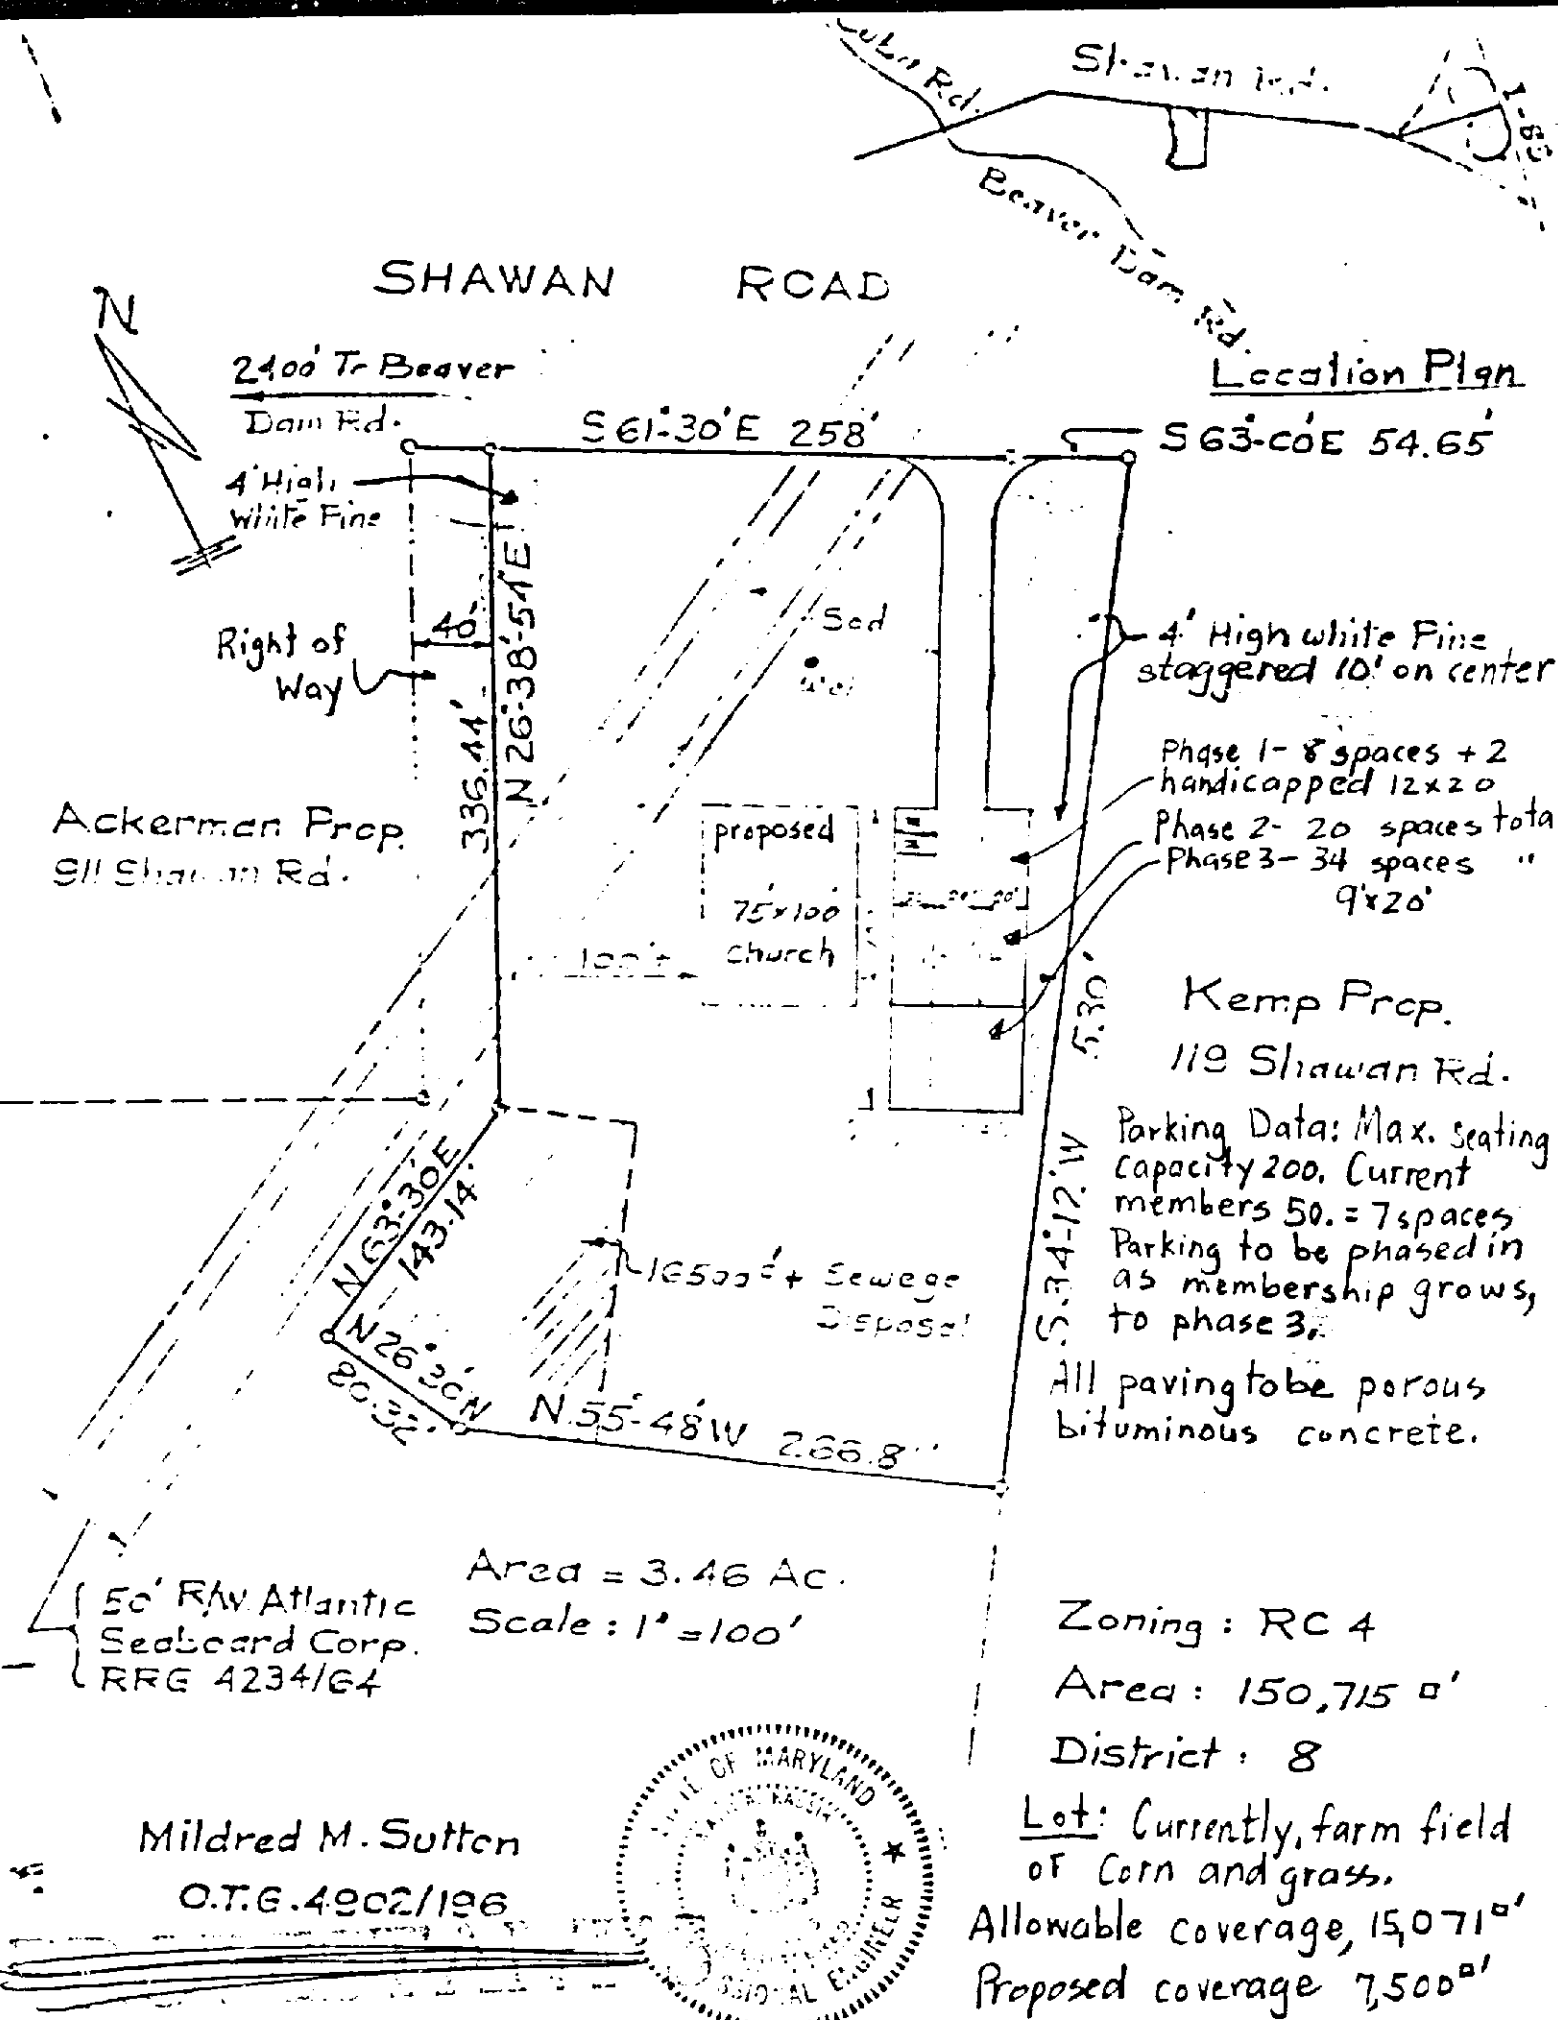 Shawan Rd.
Rd.
I-83
Beaver Dam Rd.
Location Plan
SHAWAN ROAD
N
2400' To Beaver
Dam Rd.
S 61°-30'E 258'
S 63°-00'E 54.65'
4' High
White Pine
40'
Right of
Way
N 26°-38'-54"E
336.44'
Sod
4' High white Pine
staggered 10' on center
Phase 1- 8 spaces + 2
handicapped 12x20
Phase 2- 20 spaces tota
Phase 3- 34 spaces "
9'x20'
Ackerman Prop.
911 Shawan Rd.
proposed
75'x100'
church
100'±
Kemp Prop.
119 Shawan Rd.
S 34°-12' W
Parking Data: Max. seating
capacity 200. Current
members 50. = 7 spaces
Parking to be phased in
as membership grows,
to phase 3.
All paving to be porous
bituminous concrete.
N 63°-30'E
143.14'
N 26°30'W
80.32'
16500 ± Sewege
Disposal
N 55°-48'W 266.8'
50' R/W Atlantic
Seaboard Corp.
RRG 4234/64
Area = 3.46 Ac.
Scale : 1" = 100'
Zoning : RC 4
Area : 150,715 □'
District : 8
Lot: Currently, farm field
of Corn and grass.
Allowable coverage, 15,071 □'
Proposed coverage 7,500 □'
Mildred M. Sutton
O.T.G. 4902/196
OF MARYLAND
ENGINEER